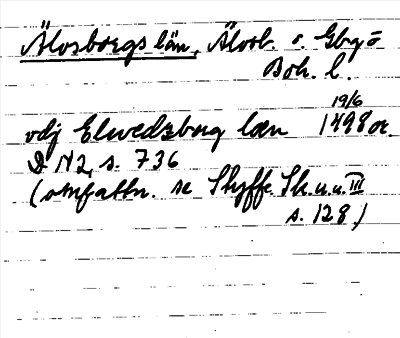 Älvsborgs län, Älvsb. o. Gbg o
Boh. l.
19/6
vdj Elwedzborg læn 1498 or.
D N 2, s. 736
(omfattn. se Styffe Sk. u. u. III
s. 128)